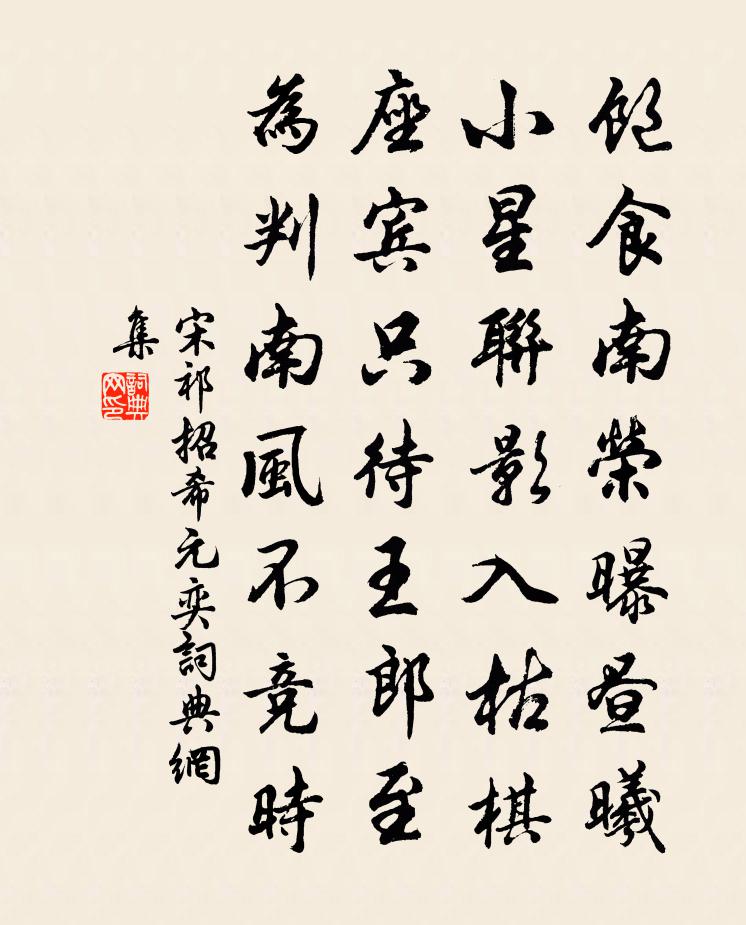 飽食南榮曝晝曦
小星聯影入枯棋
座賓只待王郎至
為判南風不竞時
宋祁招希元奕詞典網
集
詞典网印